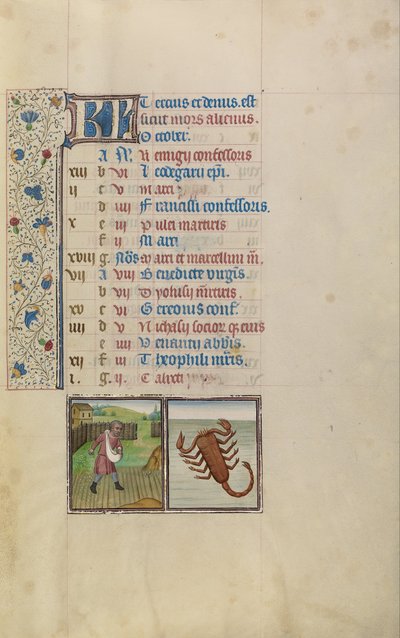 KL Tercius et denus est
sicut mors alienus.
October.
A N. Remigii confessoris
xiii b vi Leodegarii epi.
ii c v Marci
d iiii Francisci confessoris.
x e iii Pulci martiris
f ii Marci
xviii g Nōs Marci et marcellini m̄.
vii A viii Benedicte virgis.
b vii Dyonisii martiris.
xv c vi Gereonis conf.
iiii d v Nichasii socior. qz eius
e iiii Venantii abbis.
xii f iii Theophili mris.
i. g. ii. Calixti pape